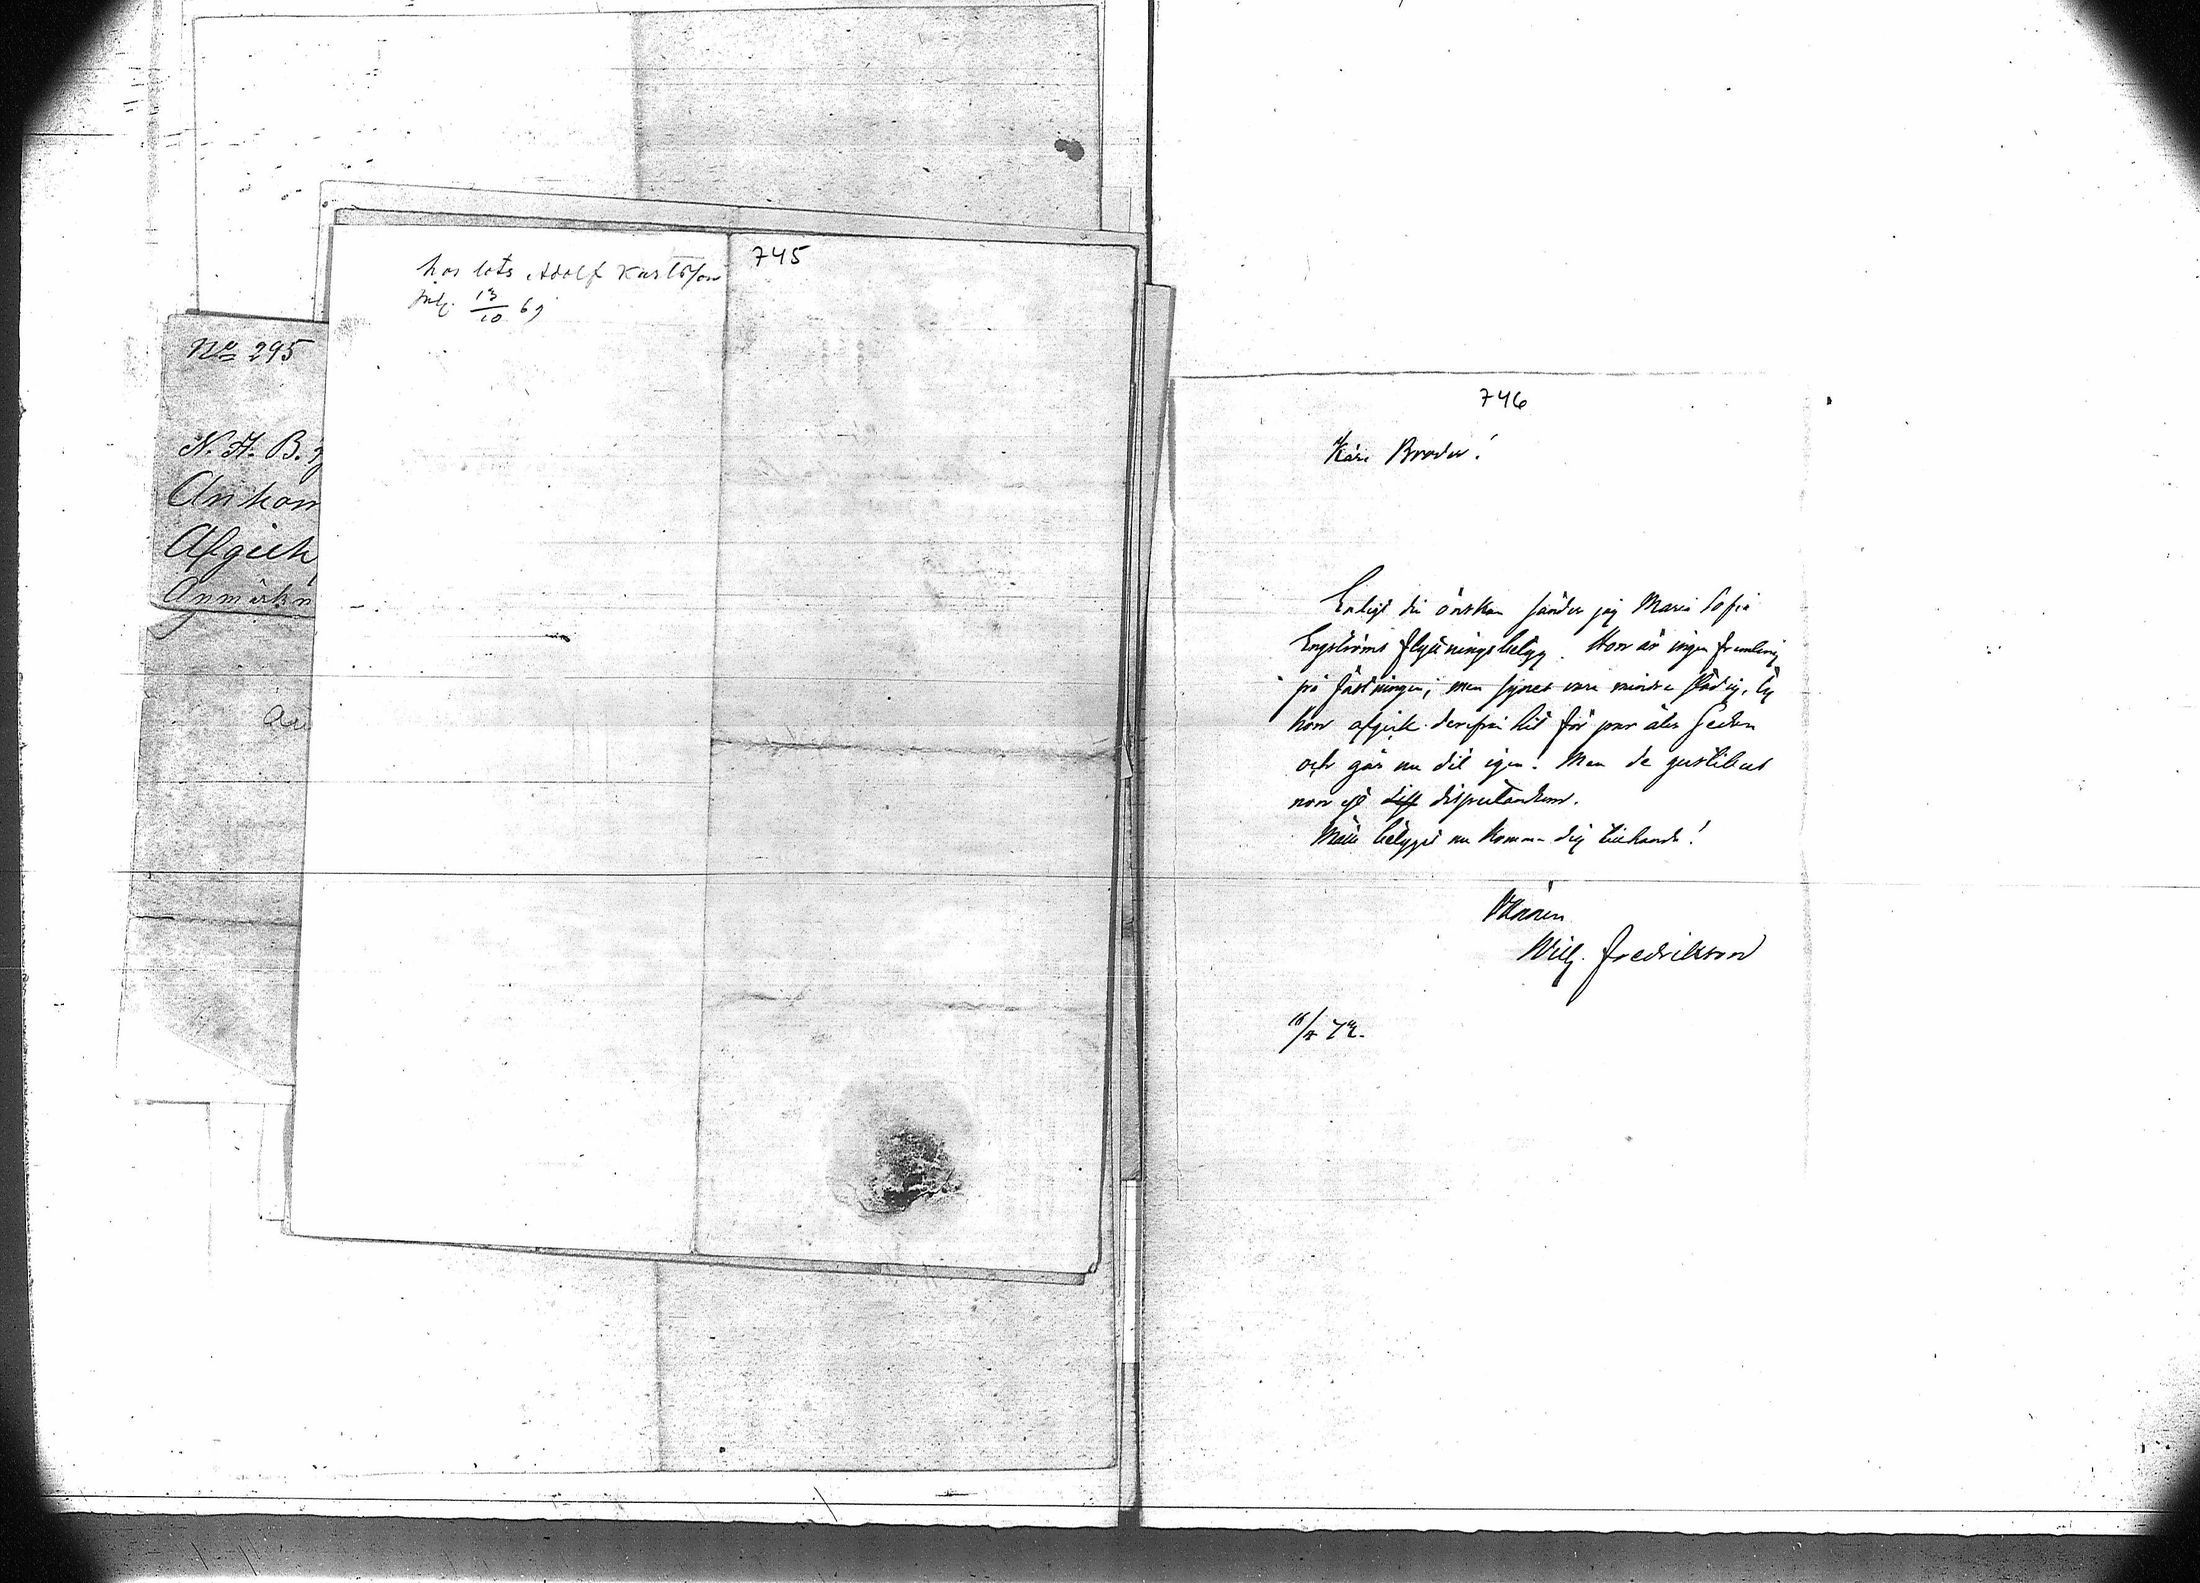 745
hos lots Adolf Kustofson
13/10 69
No 295
N. A. B.
Ankom
Afgick
Anmärkn
746
Käre Broder!
Enligt din önskan sänder jag Maria Sofia
Engströms flyttningsbetyg. Hon är ingen fremling
på fästningen; men synes vara mindre städig, ty
hon afgick derifrån hit för par åtr sedan
och går nu dit igen. Men de gustibus
non est disputandum.
Måtte betyget nu komma dig tillhanda!
Vännen
Wilh. Fredrikson
72.